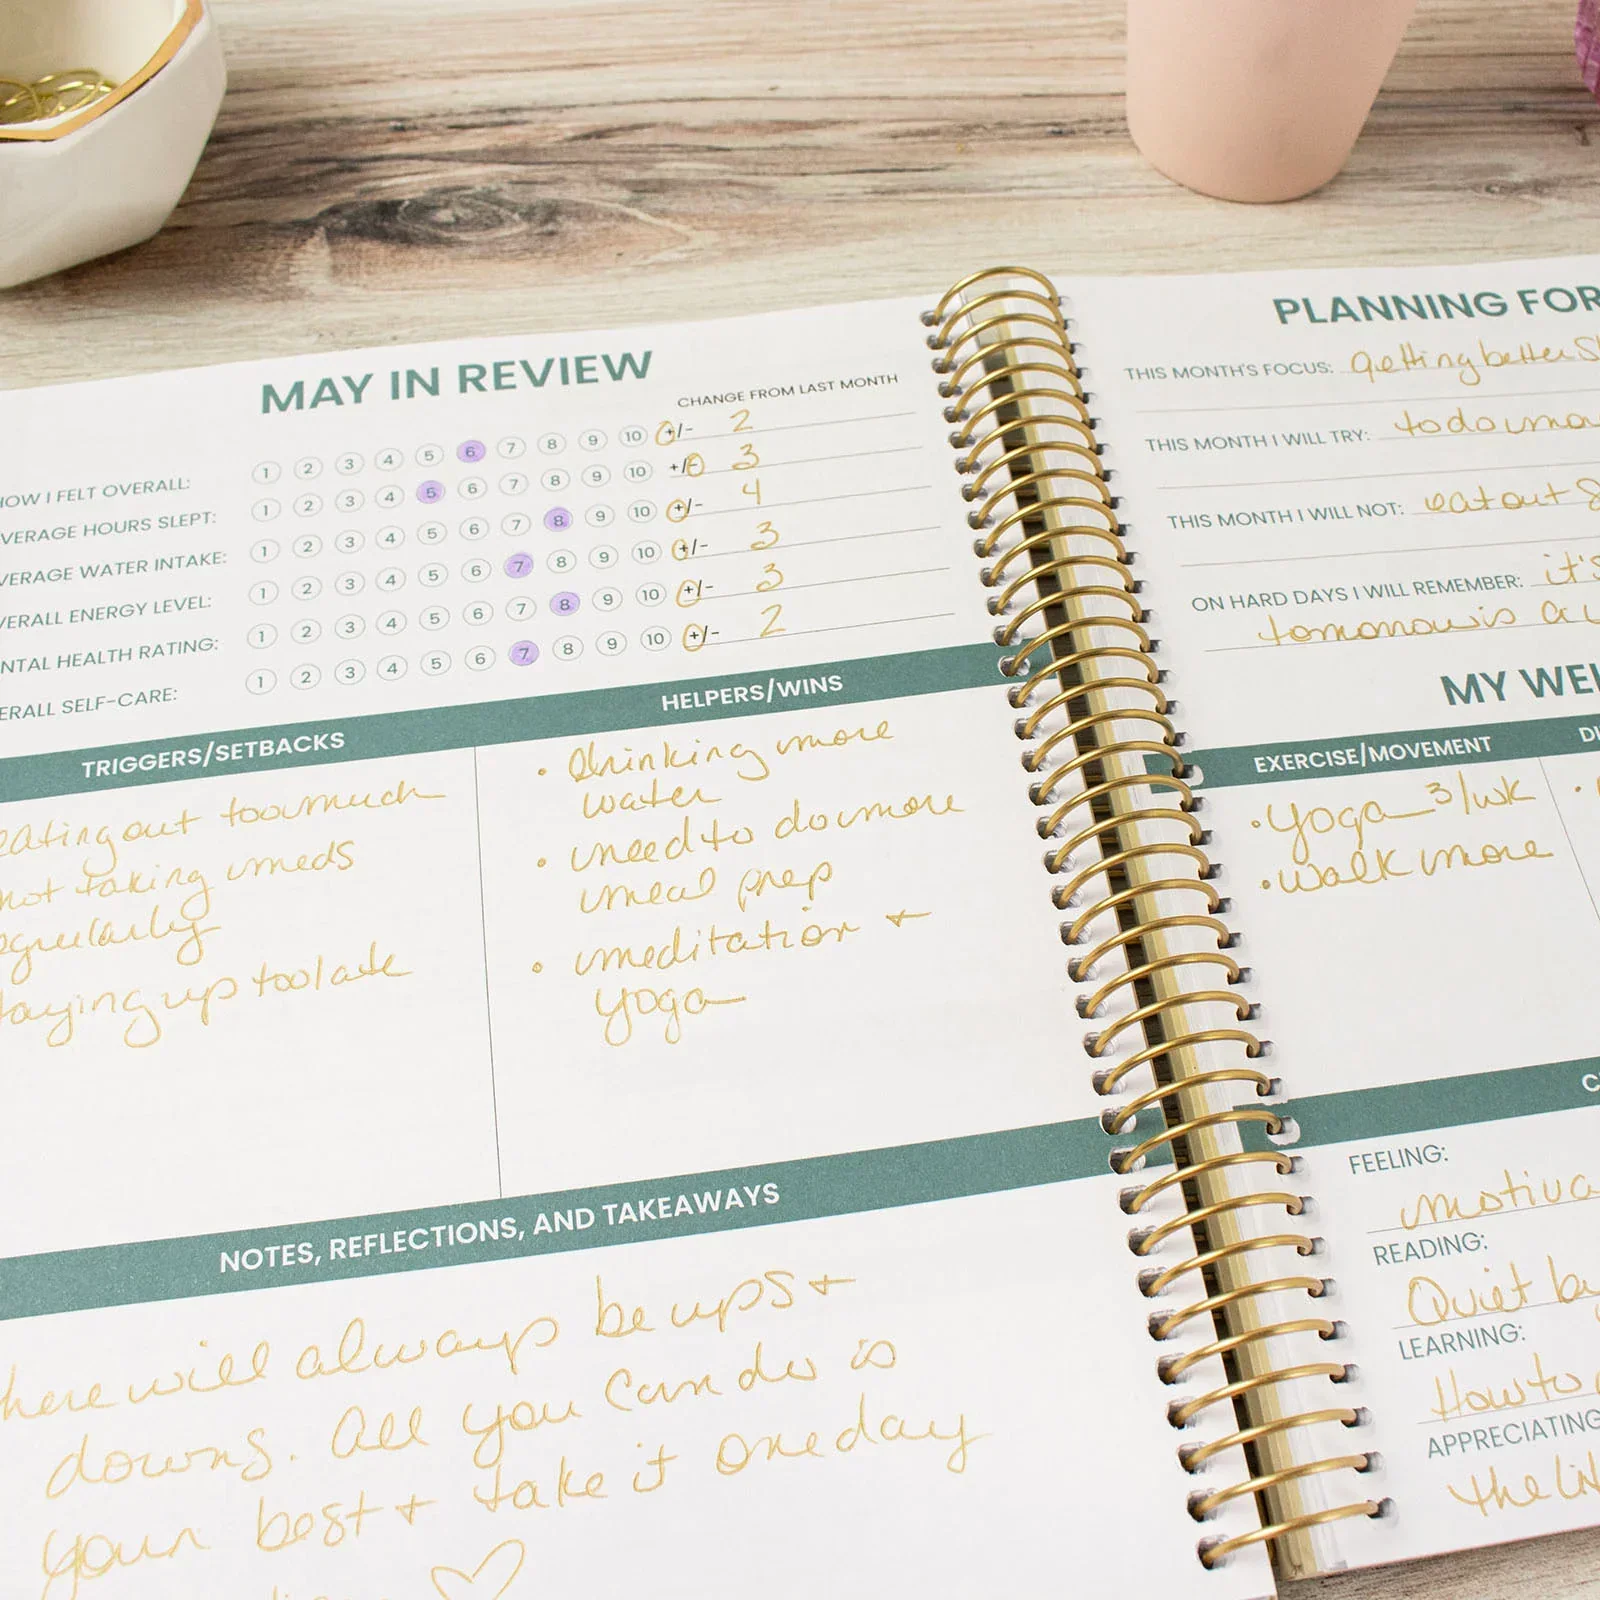 MAY IN REVIEW
CHANGE FROM LAST MONTH
HOW I FELT OVERALL: 1 2 3 4 5 6 7 8 9 10 +/- 2
VERAGE HOURS SLEPT: 1 2 3 4 5 6 7 8 9 10 +/- 3
VERAGE WATER INTAKE: 1 2 3 4 5 6 7 8 9 10 +/- 4
VERALL ENERGY LEVEL: 1 2 3 4 5 6 7 8 9 10 +/- 3
NTAL HEALTH RATING: 1 2 3 4 5 6 7 8 9 10 +/- 3
ERALL SELF-CARE: 1 2 3 4 5 6 7 8 9 10 +/- 2
TRIGGERS/SETBACKS
eating out too much
not taking meds
egularly
taying up too late
HELPERS/WINS
• drinking more
water
• need to do more
meal prep
• meditation +
yoga
NOTES, REFLECTIONS, AND TAKEAWAYS
here will always be ups +
downs. All you can do is
your best + take it one day
PLANNING FOR
THIS MONTH'S FOCUS: getting better
THIS MONTH I WILL TRY: to do
THIS MONTH I WILL NOT: eat out
ON HARD DAYS I WILL REMEMBER: it's
tomorrow is a
MY WEL
EXERCISE/MOVEMENT
• yoga 3/wk
• walk more
FEELING:
motiva
READING:
Quiet by
LEARNING:
How to
APPRECIATING
the lit